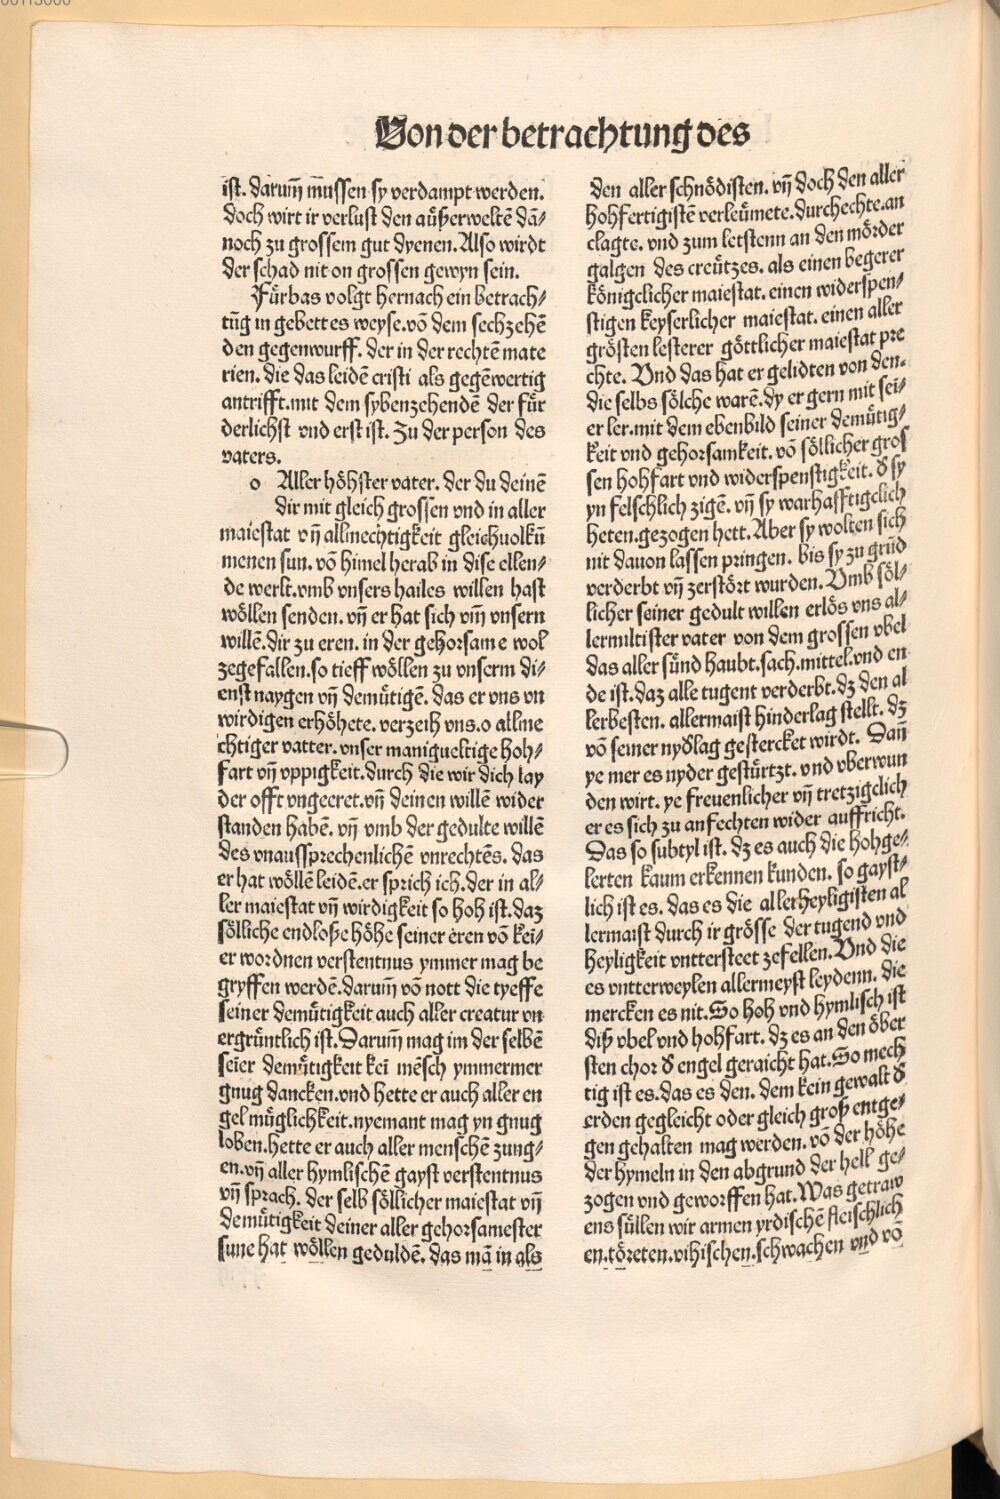 Von der betrachtung des
ist. darum̄ mussen sy verdampt werden.
doch wirt ir verlust den auͤßerweltē dā-
noch zu grossem gut dyenen. Also wirdt
der schad nit on grossen gewyn sein.
Fuͤrbas volgt hernach ein betrach-
tūg in gebettes weyse. vō dem sechzehē
den gegenwurff. der in der rechtē mate
rien. die das leidē cristi als gegēwertig
antrifft. mit dem sybenzehendē der fuͤr
derlichst vnd erst ist. Zu der person des
vaters.
o Aller hoͤhster vater. der du deinē
dir mit gleich grossen vnd in aller
maiestat vn̄ allmechtigkeit gleichuolkū
menen sun. vō himel herab in dise ellen-
de werlt. vmb vnsers hailes willen hast
woͤllen senden. vn̄ er hat sich vm̄ vnsern
willē. dir zu eren. in der gehorsame wol
zegefallen. so tieff woͤllen zu vnserm di-
enst naygen vn̄ demuͤtigē. das er vns vn
wirdigen erhoͤhete. verzeih vns. o allme
chtiger vatter. vnser manigueltige hoh-
fart vn̄ vppigkeit. durch die wir dich lay
der offt vngeeret. vn̄ deinen willē wider
standen habē. vn̄ vmb der gedulte willē
des vnaussprechenlichē vnrechtēs. das
er hat woͤllē leidē. er sprich ich. der in al-
ler maiestat vn̄ wirdigkeit so hoh ist. daz
soͤlliche endloße hoͤhe seiner eren vō kei-
er wordnen verstentnus ymmer mag be
gryffen werdē. darum̄ vō nott die tyeffe
seiner demuͤtigkeit auch aller creatur vn
ergruͤntlich ist. Darum̄ mag im der selbē
seīer demuͤtigkeit keī mēsch ymmermer
gnug dancken. vnd hette er auch aller en
gel muͤglichkeit. nyemant mag yn gnug
loben. hette er auch aller menschē zung-
en. vn̄ aller hymlischē gayst verstentnus
vn̄ sprach. der selb soͤllicher maiestat vn̄
demuͤtigkeit deiner aller gehorsamester
sune hat woͤllen geduldē. das mā in als
den aller schnoͤdisten. vn̄ doch den aller
hohfertigistē verleuͤmete. durchechte. an
clagte. vnd zum letstenn an den moͤrder
galgen des creuͤtzes. als einen begerer
koͤnigclicher maiestat. einen widerspen-
stigen keyserlicher maiestat. einen aller
groͤsten lesterer goͤttlicher maiestat pre
chte. Vnd das hat er gelidten von den-
die selbs soͤlche warē. dy er gern mit sei-
er ler. mit dem ebenbild seiner demuͤtig-
keit vnd gehorsamkeit. vō soͤllicher gros
sen hohfart vnd widerspenstigkeit. đ sy
yn felschlich zigē. vn̄ sy warhafftigclich
heten. gezogen hett. Aber sy wolten sich
nit dauon lassen pringen. bis sy zu grūd
verderbt vn̄ zerstoͤrt wurden. Vmb soͤl-
licher seiner gedult willen erloͤs vns al-
lermiltister vater von dem grossen vbel
das aller suͤnd haubt. sach. mittel. vnd en
de ist. daz alle tugent verderbt. dz den al
lerbesten. allermaist hinderlag stellt. dz
vō seiner nyđlag gestercket wirdt. Dan̄
ye mer es nyder gestuͤrtzt. vnd vberwun
den wirt. ye freuenlicher vn̄ tretzigclich
er es sich zu anfechten wider auffricht.
Das so subtyl ist. dz es auch die hohge-
lerten kaum erkennen kunden. so gayst-
lich ist es. das es die allerheyligisten al
lermaist durch ir groͤsse der tugend vnd
heyligkeit vntterste͏et zefellen. Vnd die
es vntterweylen allermeyst leydenn. die
mercken es nit. So hoh vnd hymlisch ist
diß vbel vnd hohfart. dz es an den oͤber
sten chor đ engel geraicht hat. So mech
tig ist es. das es den. dem kein gewalt đ
erden gegleicht oder gleich groß entge-
gen gehalten mag werden. vō der hoͤhe
der hymeln in den abgrund der hell ge-
zogen vnd geworffen hat. Was getraw
ens suͤllen wir armen yrdischē fleischlich
en. toͤreten. vihischen. schwachen vnd vō